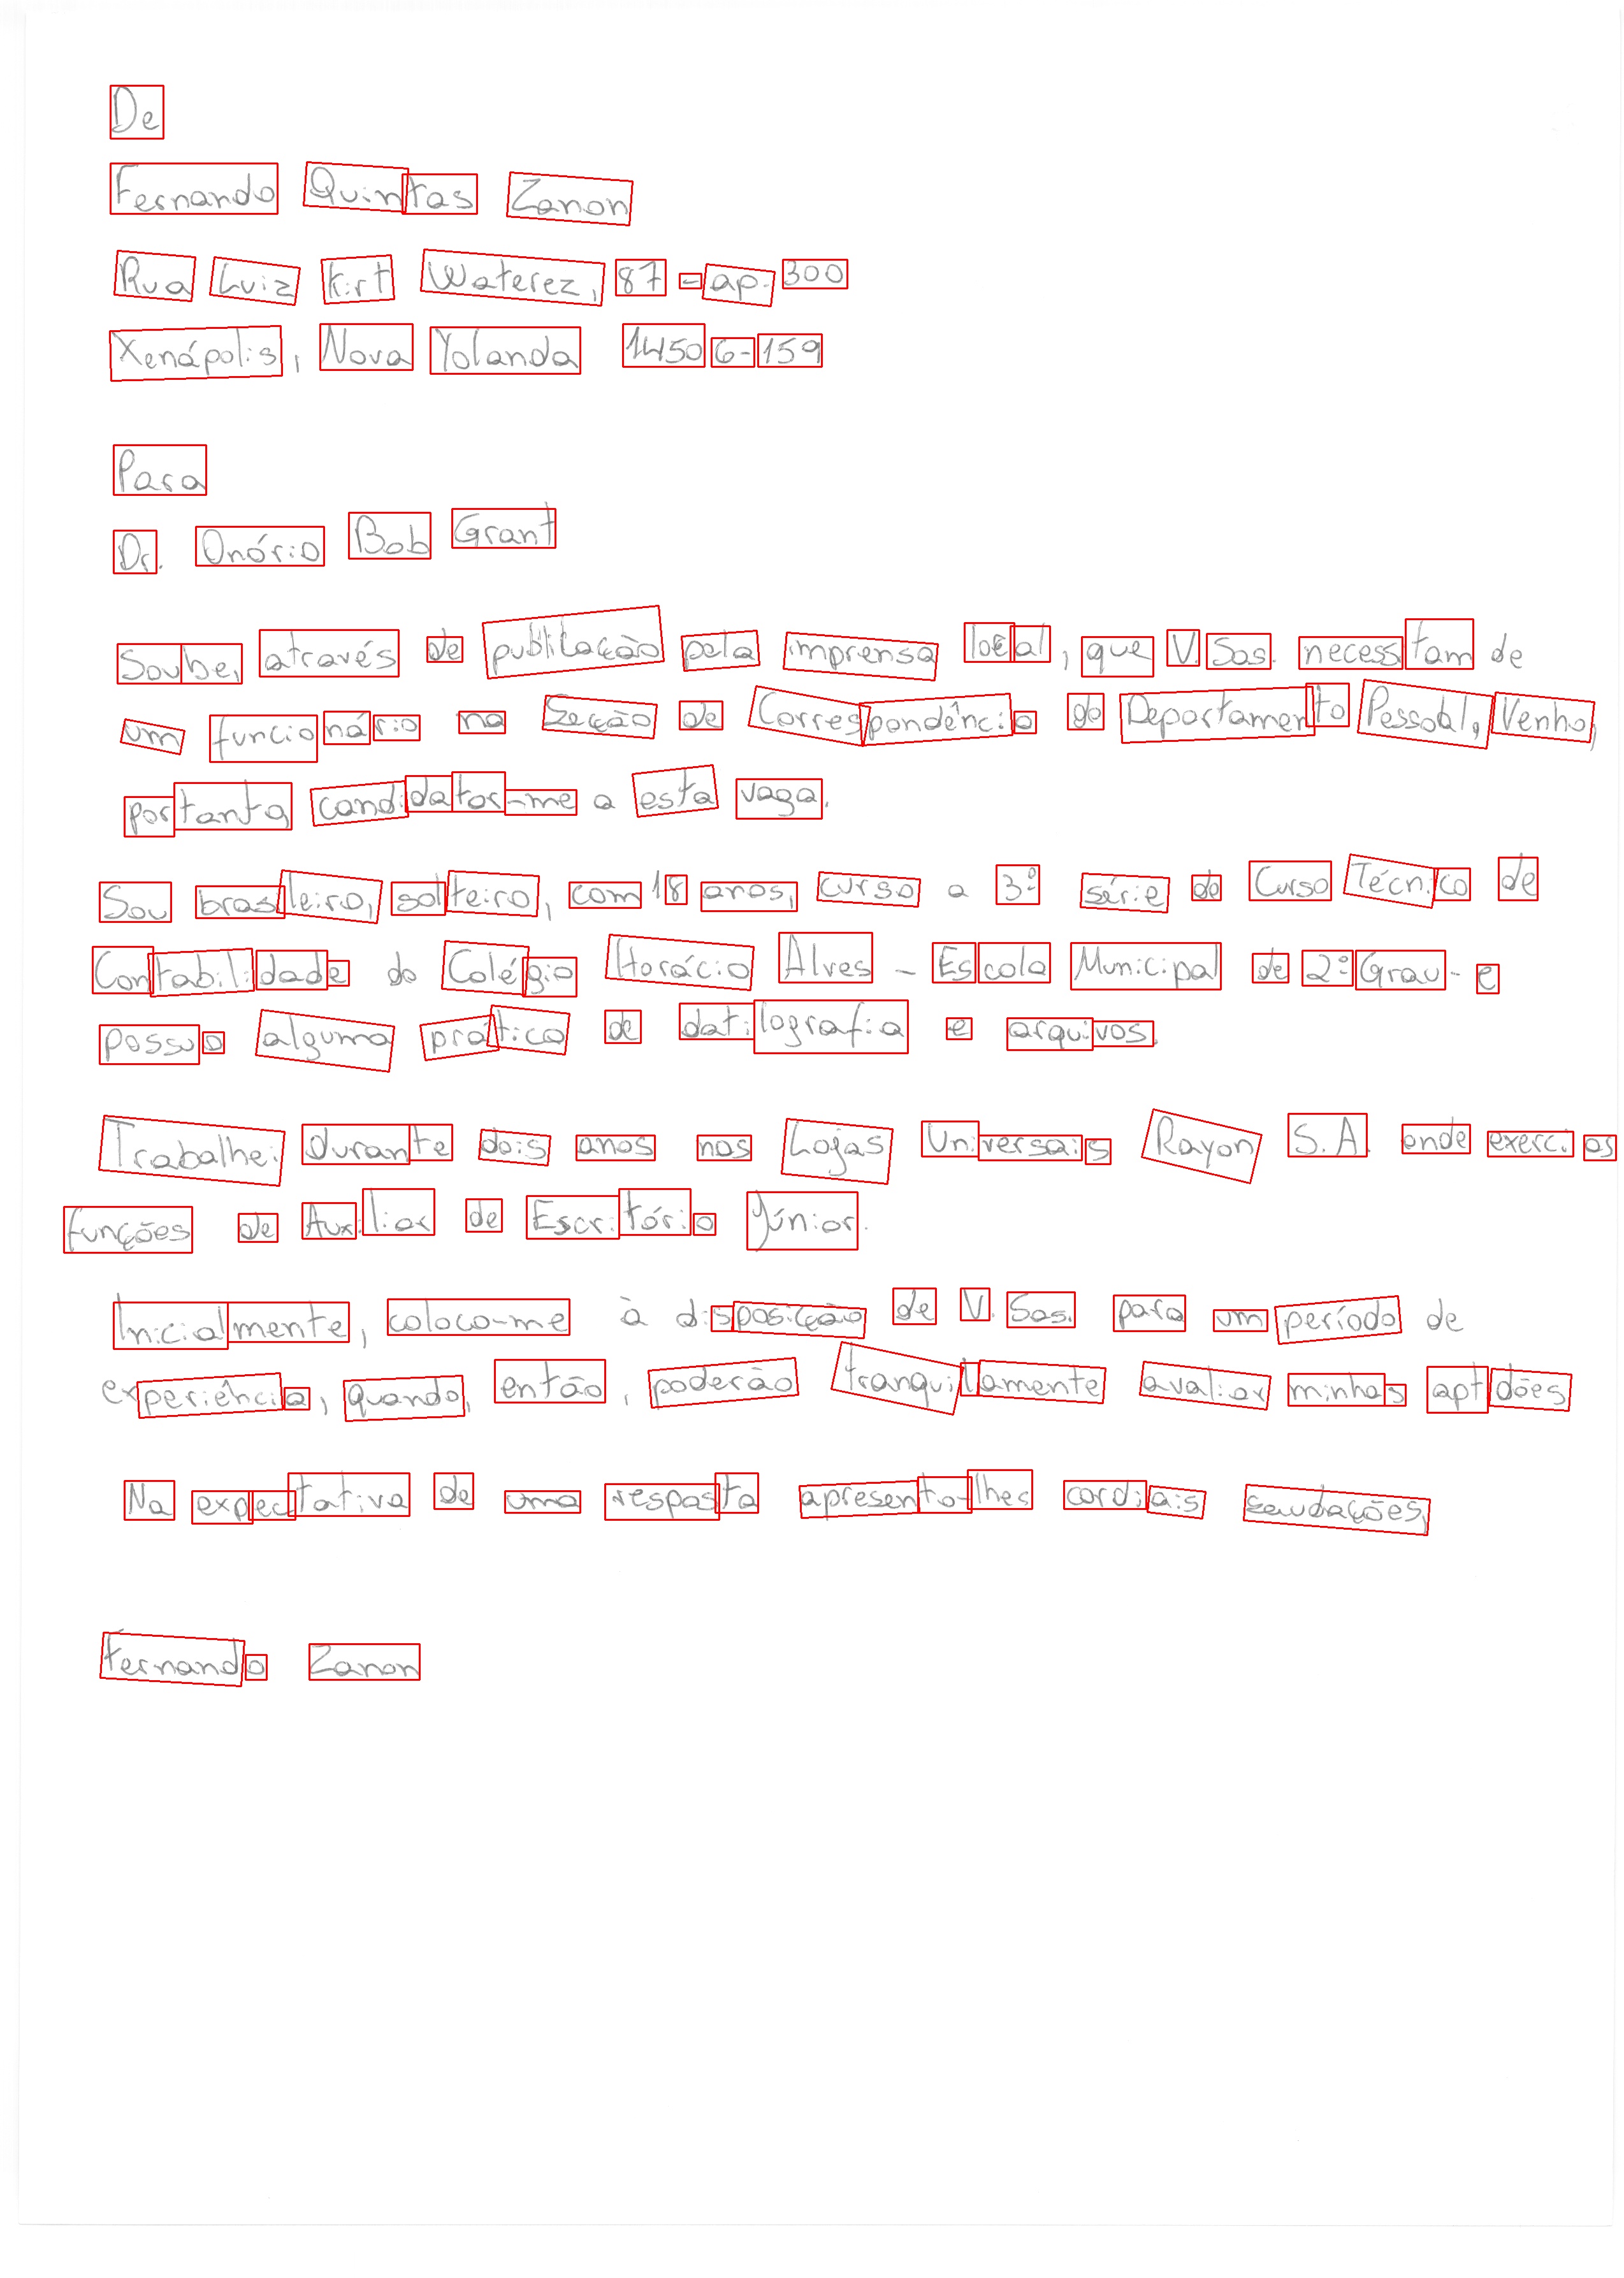 De
Fernando Quintas Zanon
Rua Luiz Kirt Waterez, 87 - ap. 300
Xenápolis, Nova Yolanda 14506-159
Para
Dr. Onório Bob Grant
Soube, através de publicação pela imprensa local, que V. Sas. necessitam de
um funcionário na Seção de Correspondência do Departamento Pessoal, Venho,
portanto, candidatar-me a esta vaga.
Sou brasileiro, solteiro, com 18 anos, curso a 3ª série do Curso Técnico de
Contabilidade do Colégio Horácio Alves - Escola Municipal de 2º Grau - e
possuo alguma prática de datilografia e arquivos.
Trabalhei durante dois anos nas Lojas Universais Rayon S.A. onde exerci as
funções de Auxiliar de Escritório Júnior.
Inicialmente, coloco-me à disposição de V. Sas. para um período de
experiência, quando, então, poderão tranquilamente avaliar minhas aptidões
Na expectativa de uma resposta apresento-lhes cordiais saudações,
Fernando Zanon